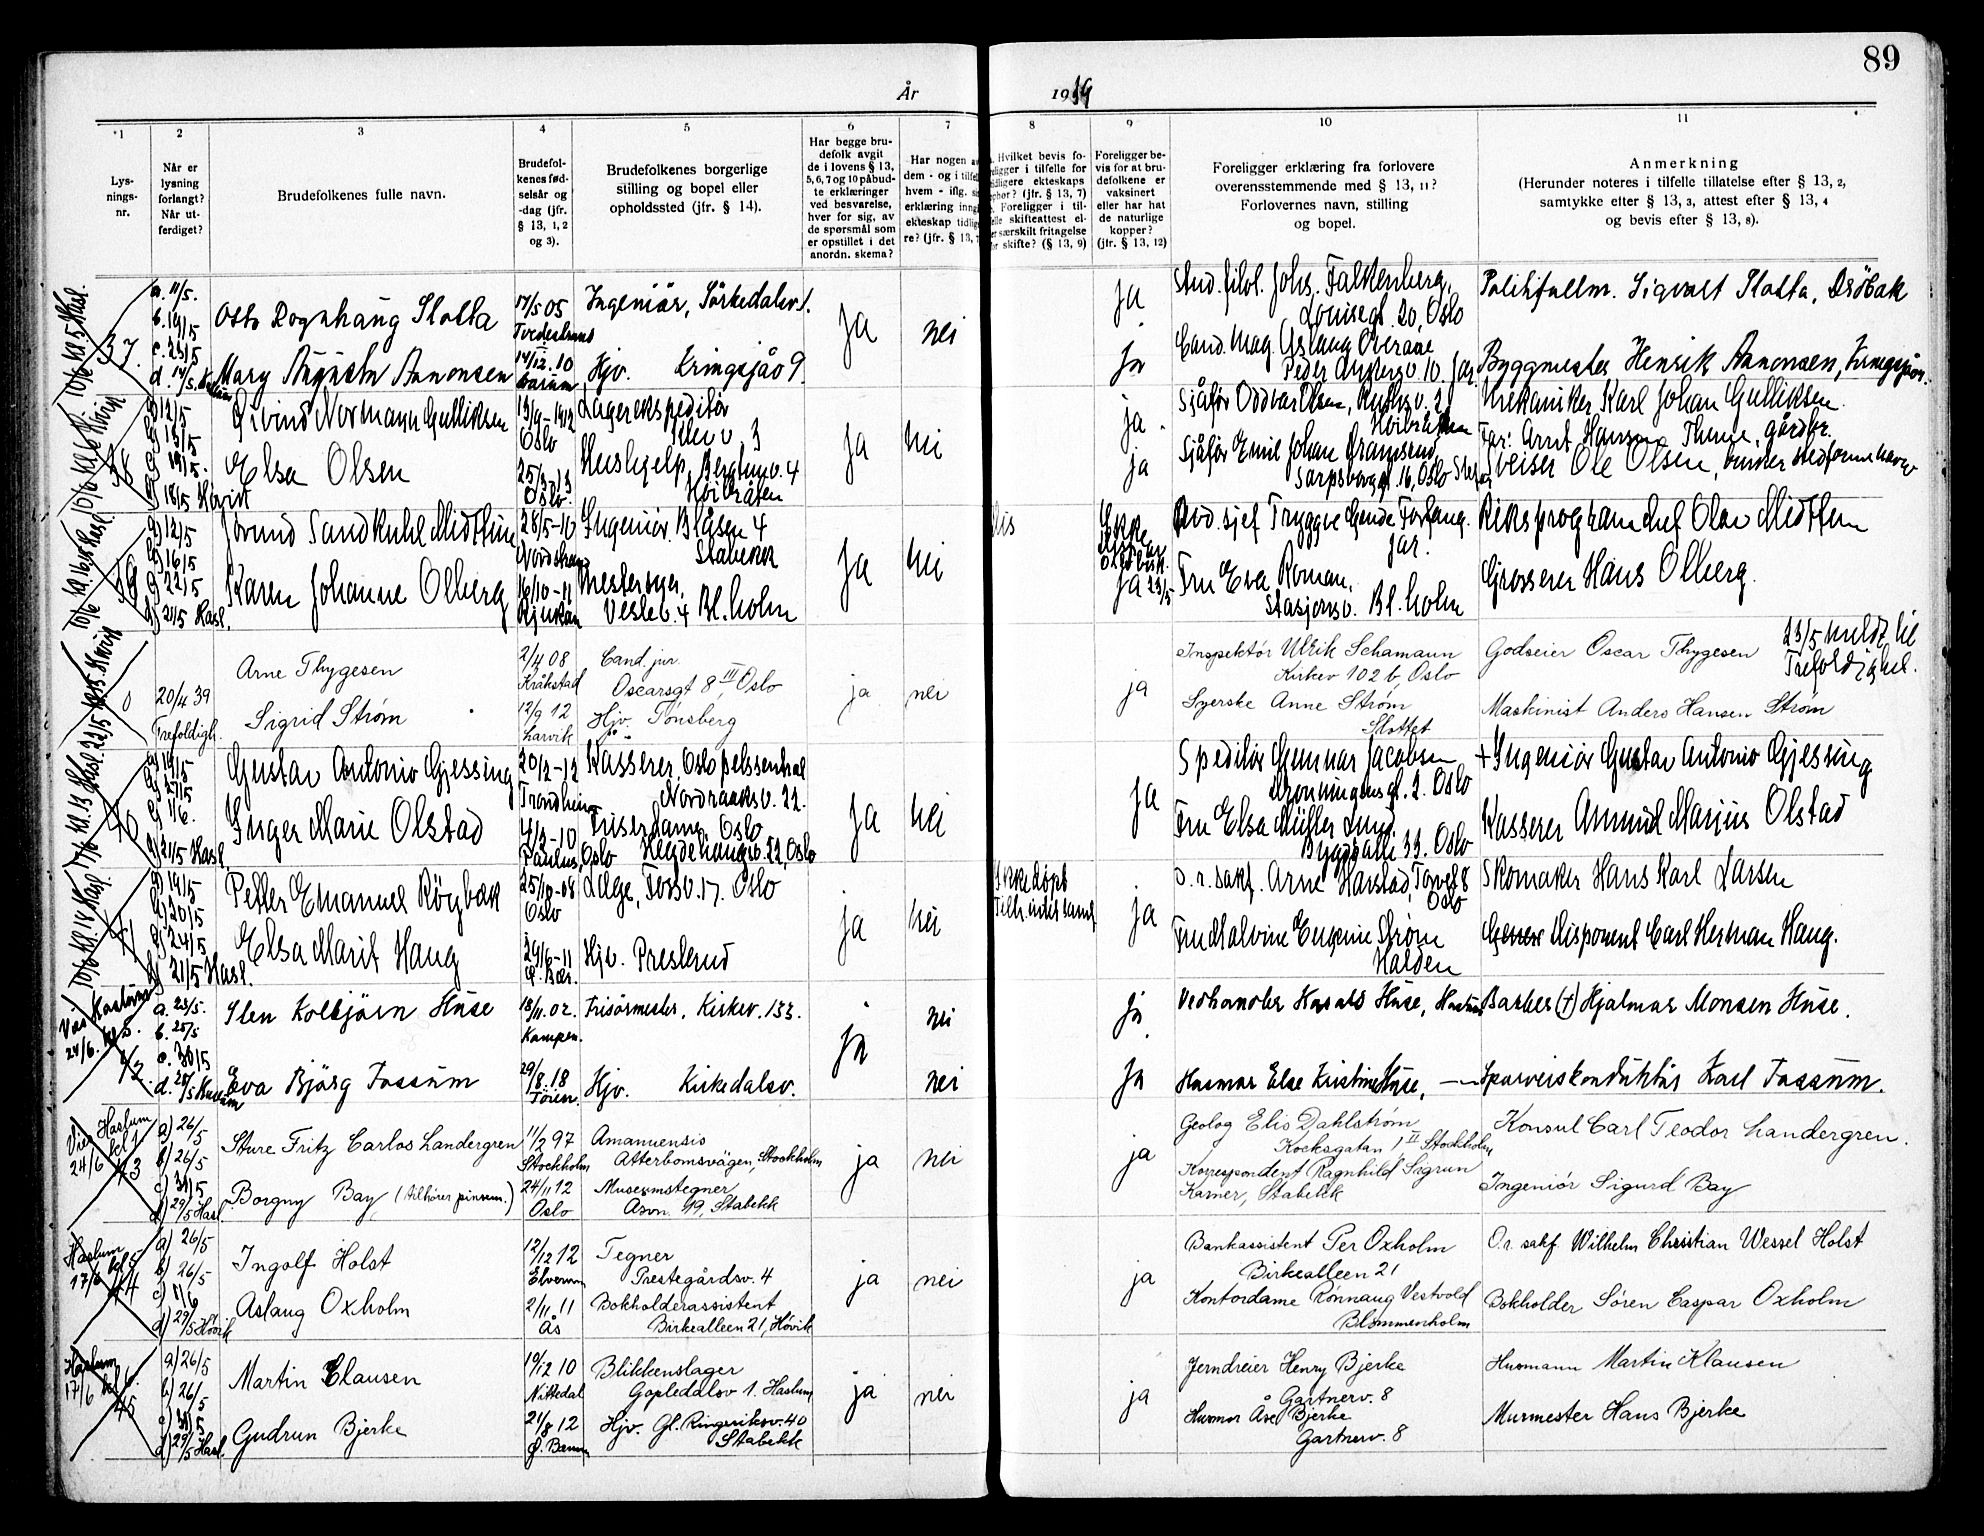 89
År 1939
*1 2 3 4 5 6 7 8 9 10 11
Lys-
nings-
nr.
Når er
lysning
forlangt?
Når ut-
ferdiget?
Brudefolkenes fulle navn.
Brudefol-
kenes fød-
selsår og
-dag (jfr.
§ 13, 1, 2
og 3).
Brudefolkenes borgerlige
stilling og bopel eller
opholdssted (jfr. § 14).
Har begge bru-
defolk avgitt
de i lovens § 13,
5, 6, 7 og 10 påbud-
te erklæringer
ved besvarelse,
hver for sig, av
de spørsmål som
er opstillet i det
anordn. skema?
Har nogen av
dem - og i tilfelle
hvem - iflg. si
erklæring inngå
ekteskap tidlig
re? (jfr. § 13, 7
Hvilket bevis fo-
religger i tilfelle for
tidligere ekteskaps
ophør? (jfr. § 13, 7)
Foreligger i til-
felle skifteattest el-
ler særskilt fritagelse
for skifte? (§ 13, 9)
Foreligger be-
vis for at bru-
defolkene er
vaksinert
eller har hat
de naturlige
kopper?
(jfr. § 13, 12)
Foreligger erklæring fra forlovere
overensstemmende med § 13, 11?
Forlovernes navn, stilling
og bopel.
Anmerkning
(Herunder noteres i tilfelle tillatelse efter § 13, 2,
samtykke efter § 13, 3, attest efter § 13, 4
og bevis efter § 13, 8).
37.
a. 11/5.
Otto Rognhaug Slotta
17/5 05
Tvedestrand
Ingeniør, Sørkedalsv. 1.
ja
nei
ja
Stud. filol. Johs. Falkenberg,
Louisegt. 20, Oslo
Politifullm. Sigvart Slotta, Drøbak
Mary Augusta Annonsen
14/12. 10
Bærum
Hjv. Kringsjåv 9.
ja
Cand. mag. Aslaug Overaae
Peder Ankersv 10. Jar
Byggmester Henrik Annonsen,
38
a) 12/5
b) 15/5
c) 19/5.
d) 18/5 Høvik
Øivind Normann Gulliksen
Oslo
Lagerekspeditør
ja
nei
ja
Sjåfør Oddvar Olsen,
Høibråten
Mekaniker Karl Johan Gulliksen.
Elsa Olsen
25/3-13
Oslo
Hushjelp, Berglundv. 4
Høibråten
ja
Sjåfør Emil Johan Gramsrud
Sarpsborggt. 16, Oslo
Far: Arnt Hansen Thune, gårdbr.
Sveiser Ole Olsen,
39
a) 12/5
b) 16/5
c) 22/5
d) 21/5 Hasl.
Jørund Sandkuhl Midttun
28/5-10
Nordstrand
Ingeniør Blåsen 4
Stabekk
ja
nei
Dis
Ikke
Avd. sjef Tryggve Gende Forfang.
Jar.
Riksprogramchef Olav Midttun
Karin Johanne Olberg
16/10-11
Rjukan
Vesle v. 4 Bl. holm
ja 23/5
Fru Eva Roman,
Stasjonsv. Bl. holm
Grosserer Hans Olberg.
20/4 39
Trefoldigh.
Arne Thygesen
2/4 08
Kråkstad
Cand. jur.
Oscarsgt 8 III, Oslo
ja
nei
ja
Inspektør Ulrik Schamaun
Kirkev 102 b, Oslo
Godseier Oscar Thygesen
23/5 meldt til
Trefoldighet.
Sigrid Strøm
12/9 12
Larvik
Hjv. Tønsberg
Syerske Anne Strøm
Slottet
Maskinist Anders Hansen Strøm
40
a) 19/5
b) 27/5
c) 1/6.
d) 21/5 Hasl
Gustav Antonio Gjessing
20/2-12
Trondheim
Kasserer, Oslo pelssentral
Nordraaksv. 22.
ja
nei
ja
Speditør Gunnar Jacobsen
Dronningensgt. 2. Oslo
+ Ingeniør Gustav Antonio Gjessing
Inger Marie Olstad
4/3-10
Paulus, Oslo
Friserdame, Oslo
Hegdehaugsv. 22, Oslo
Fru Elsa Müller Lund.
Bygdøallé 33. Oslo
Kasserer Amund Marius Olstad
41
a) 19/5
b) 20/5
c) 24/5
d) 21/5 Hasl.
Petter Emanuel Röigbak
25/10-08
Oslo
Læge, Fossv. 17. Oslo
ja
nei
Ikke døpt
ja
O. r. sakf. Arne Harstad, Torvet 8
Oslo
Skomaker Hans Karl Larsen
Elsa Marit Haug
29/6-11
Ø. Bær.
Hjv. Presterud
Fru Malvine Eugenie Strøm
Halden
Disponent Carl Herman Haug.
42.
a. 23/5.
b. 25/5
c. 30/5
Sten Kolbjörn Huse
18/11. 02.
Kampen.
Frisørmester, Kirkev. 133.
ja
nei
ja.
Vedhandler Harald Huse, Haslum
Barber (+) Hjalmar Monsen Huse.
Eva Bjørg Fossum
29/8. 18
Hjv. Kirkedalsv.
nei
ja
Husmor Else Kristine Huse, —
Sporveiskonduktør Karl Fossum.
Vies Haslum
24/6 kl 1
43
a) 26/5
b) 26/5
c) 31/5
d) 29/5 Hasl.
Sture Fritz Carlos Landergren
11/2 97
Stockholm
Amanuensis
Atterbomsvägen, Stockholm
ja
nei
ja
Geolog Elis Dahlstrøm
Kocksgatan 1 II Stockholm
Konsul Carl Teodor Landergren.
Borgny Bay (tilhører pinsem.)
24/11 12
Oslo
Museumstegner
Åsvn. 19, Stabekk
Korrespondent Ragnhild Sigrun
Karner, Stabekk
Ingeniør Sigurd Bay
Haslum
17/6 kl 5
44
a) 26/5
b) 26/5
c) 1/6
d) 29/5 Høvik
Ingolf Holst
12/12 12
Elverum
Tegner
Prestegårdsv. 4
ja
nei
ja
Bankassistent Per Oxholm
Birkealleen 21
O.r. sakf. Wilhelm Christian Wessel Holst
Aslaug Oxholm
2/11. 11
Ås
Bokholderassistent
Birkealleen 21, Høvik
Kontordame Rønnaug Vestvold
Blommenholm
Bokholder Søren Caspar Oxholm
Haslum
17/6 kl 6.
45
a) 26/5
b) 26/5
c) 31/5
d) 29/5 Hasl.
Martin Clausen
19/12 10
Nittedal
Blikkenslager
Gopledalsv 1. Haslum
ja
nei
ja
Jerndreier Henry Bjerke
Gartnerv. 8
Husmann Martin Klausen
Gudrun Bjerke
21/8 12
Ø. Bærum
Hjv. Gl. Ringeriksv. 40
Stabekk
Husmor Åse Bjerke
Gartnerv. 8
Murmester Hans Bjerke